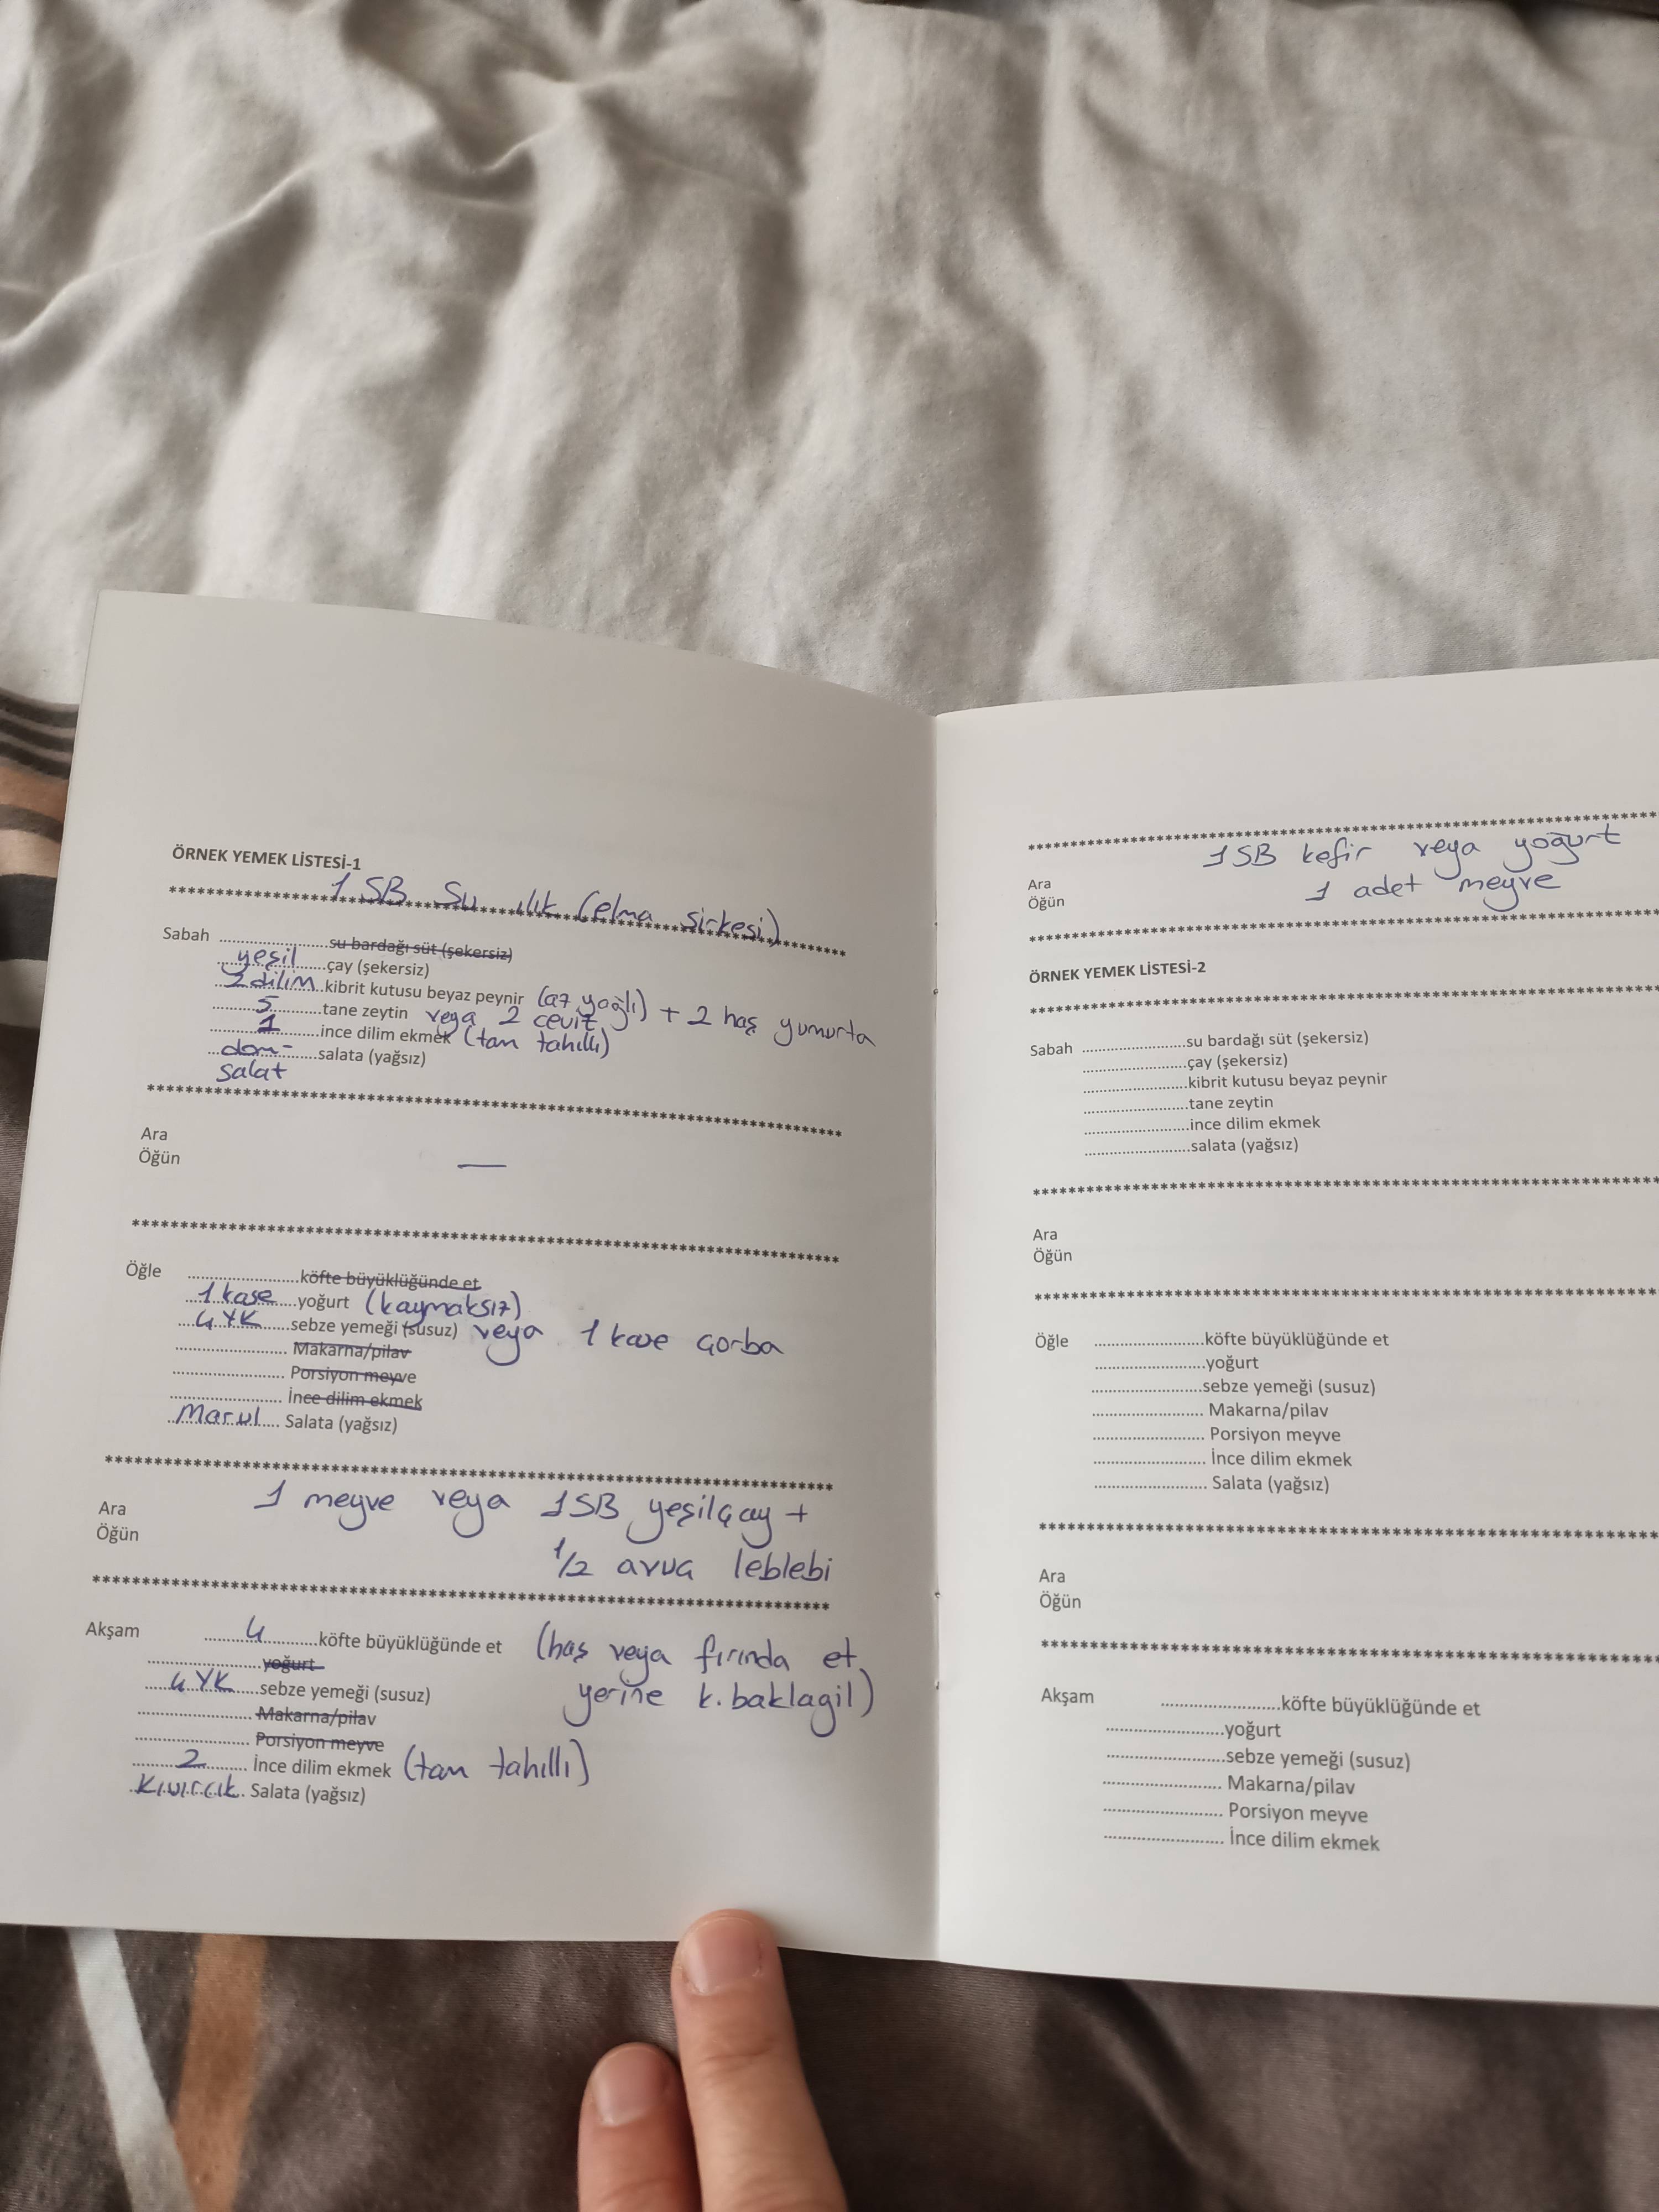 ÖRNEK YEMEK LİSTESİ-1
1 SB Su ılık (elma sirkesi)
*****************************************************************************
Sabah ........................su bardağı süt (şekersiz)
yeşil çay (şekersiz)
2 dilim kibrit kutusu beyaz peynir (az yağlı) + 2 haş yumurta
5 tane zeytin veya 2 ceviz
1 ince dilim ekmek (tam tahıllı)
dom- salata (yağsız)
salat
*****************************************************************************
Ara
Öğün —
*****************************************************************************
Öğle ........................köfte büyüklüğünde et
1 kase yoğurt (kaymaksız)
4 YK sebze yemeği (susuz) veya 1 kase çorba
........................ Makarna/pilav
........................ Porsiyon meyve
........................ İnce dilim ekmek
Marul Salata (yağsız)
*****************************************************************************
Ara 1 meyve veya 1SB yeşilçay +
Öğün 1/2 avuç leblebi
*****************************************************************************
Akşam 4 köfte büyüklüğünde et (haş veya fırında et
........................yoğurt yerine k.baklagil)
4 YK sebze yemeği (susuz)
........................ Makarna/pilav
........................ Porsiyon meyve
2 İnce dilim ekmek (tam tahıllı)
Kıvırcık Salata (yağsız)
*****************************************************************************
1SB kefir veya yoğurt
Ara 1 adet meyve
Öğün
*****************************************************************************
ÖRNEK YEMEK LİSTESİ-2
*****************************************************************************
Sabah ........................su bardağı süt (şekersiz)
........................çay (şekersiz)
........................kibrit kutusu beyaz peynir
........................tane zeytin
........................ince dilim ekmek
........................salata (yağsız)
*****************************************************************************
Ara
Öğün
*****************************************************************************
Öğle ........................köfte büyüklüğünde et
........................yoğurt
........................sebze yemeği (susuz)
........................ Makarna/pilav
........................ Porsiyon meyve
........................ İnce dilim ekmek
........................ Salata (yağsız)
*****************************************************************************
Ara
Öğün
*****************************************************************************
Akşam ........................köfte büyüklüğünde et
........................yoğurt
........................sebze yemeği (susuz)
........................ Makarna/pilav
........................ Porsiyon meyve
........................ İnce dilim ekmek